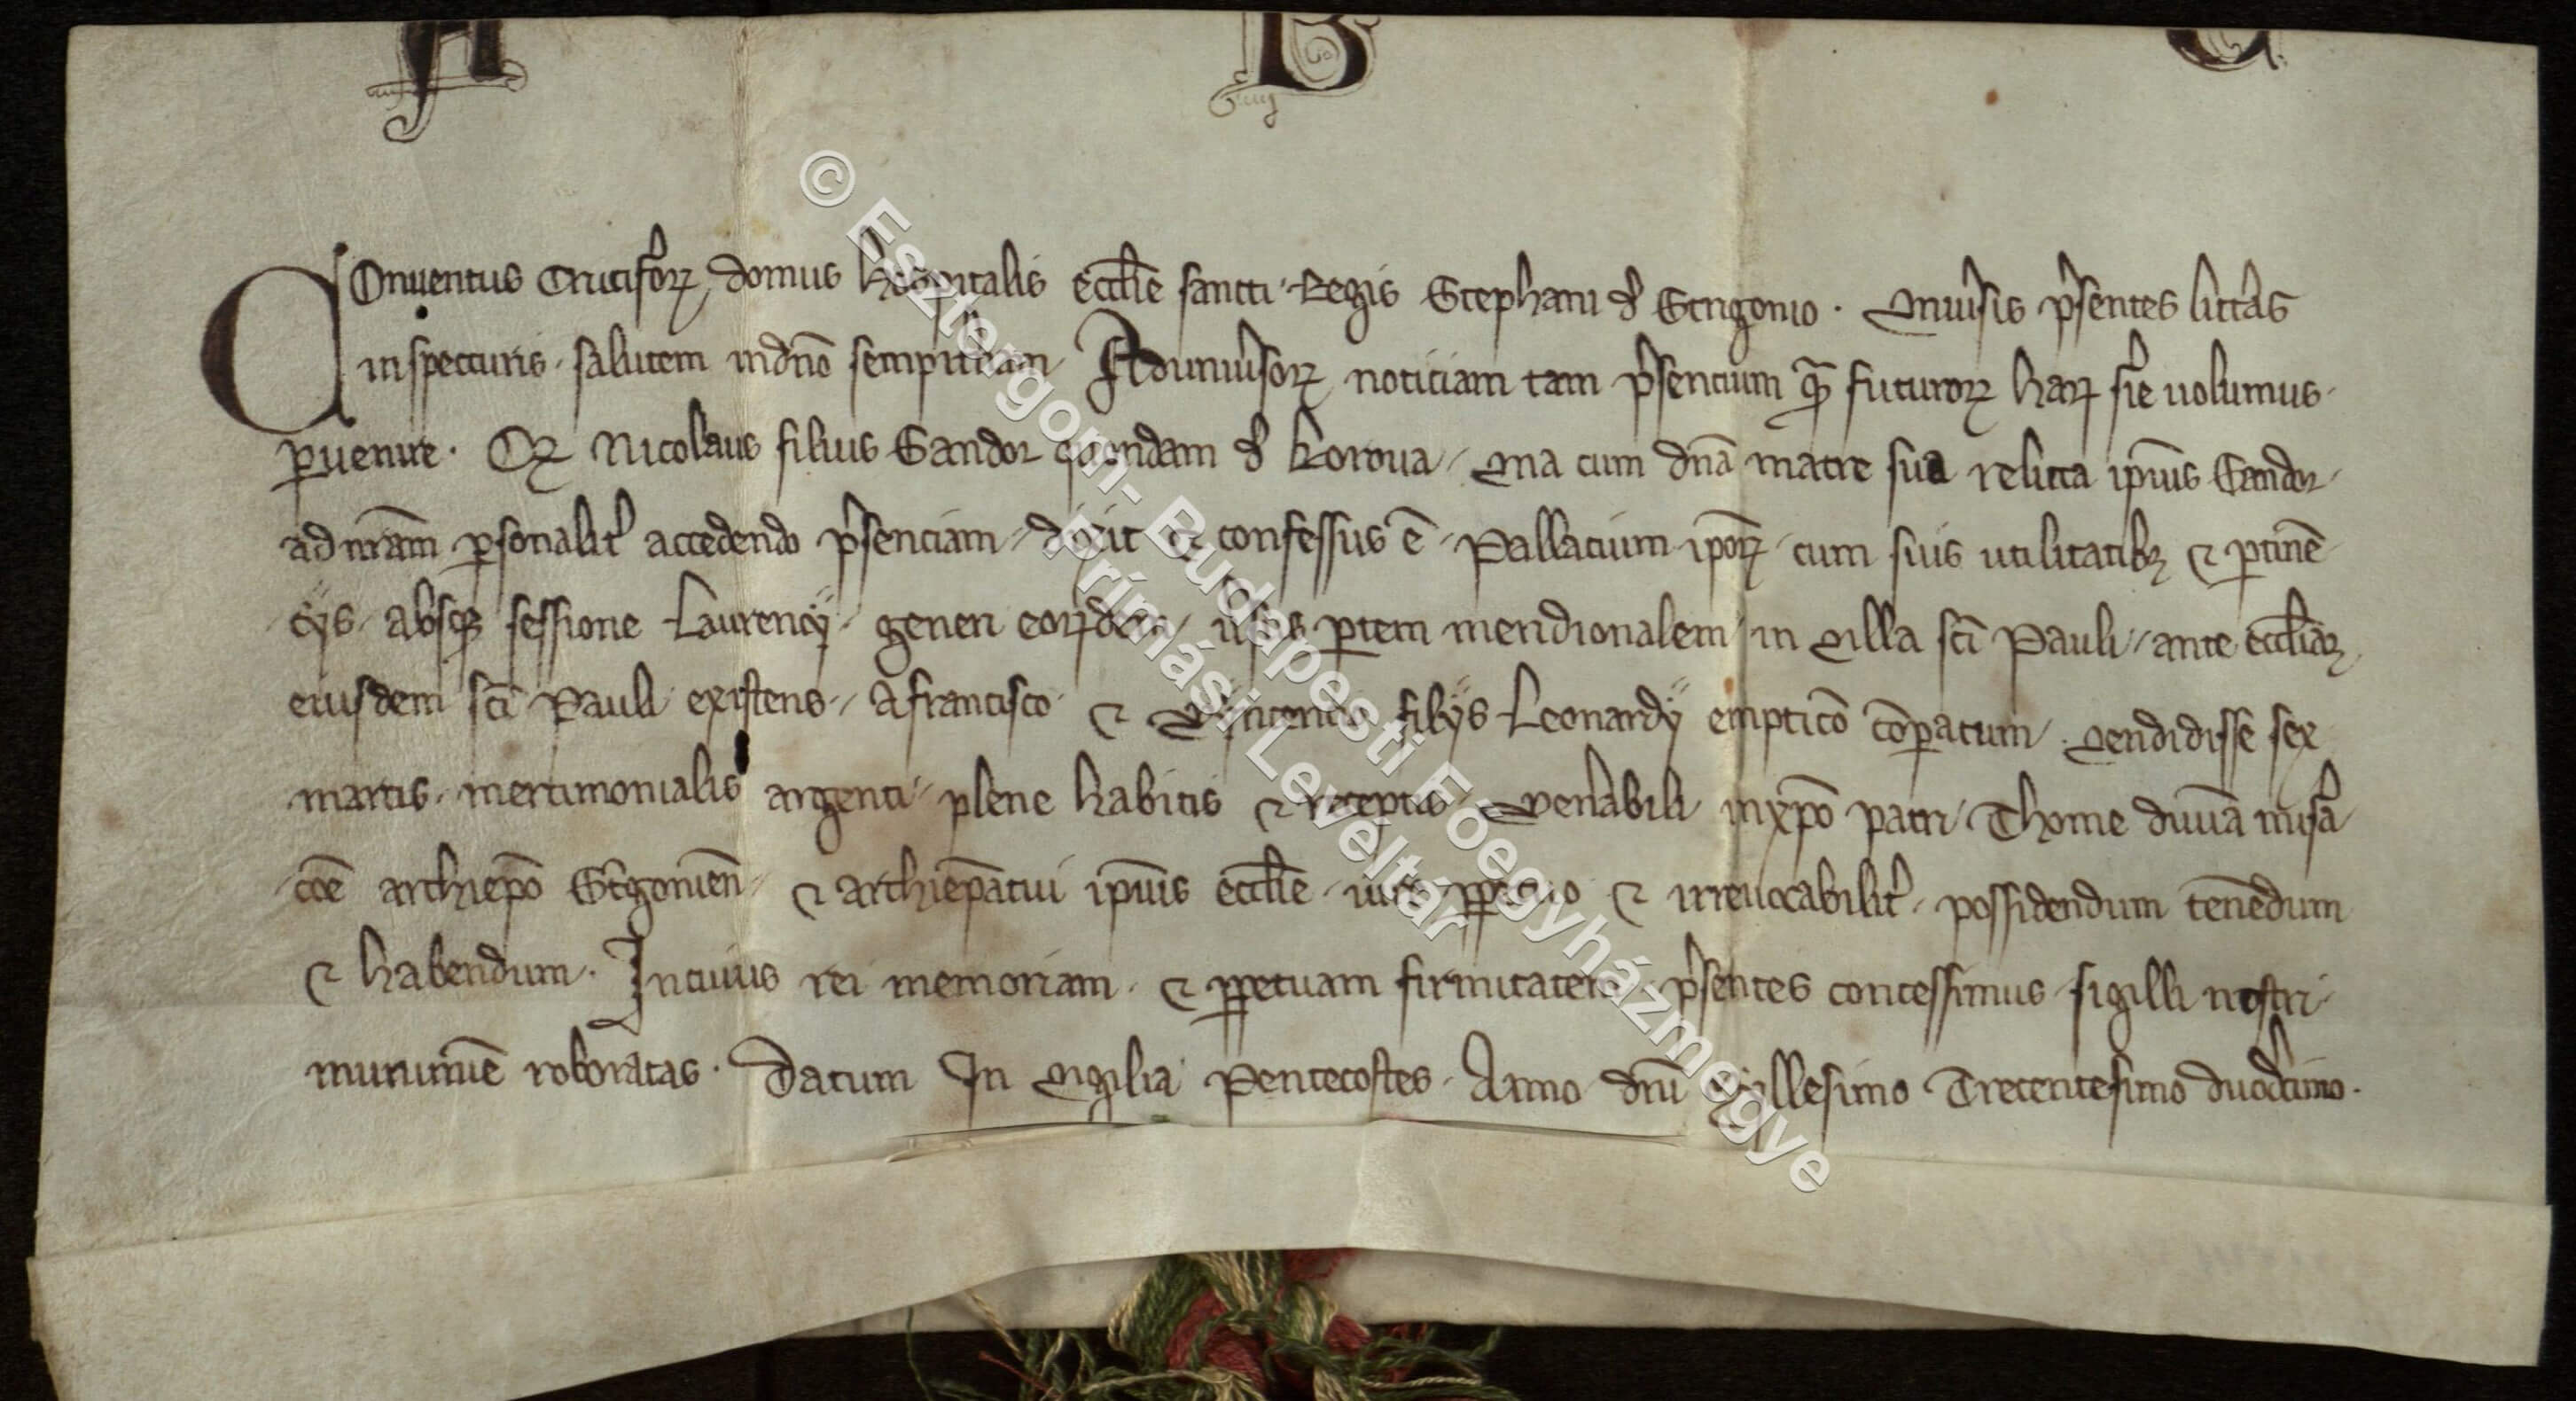 A B C
COnuentus Cruciforꝝ domus hospitalis eccl̄ie sancti Regis Stephani d̓ Strigonio . Vniu̓sis p̓sentes litt̓as
inspecturis . salutem in dn̄o sempit̓nam . Ad uniu̓sorꝝ noticiam tam p̓sencium qꝫ futurorꝝ harꝝ s̓ie uolumus .
ꝑuenire . Qꝫ Nicolaus filius Sandor quondam d̓ Koroua . Vna cum dn̄a matre sua relicta ip̄ius Sandor .
ad nr̄am ꝑsonalit̓ accedendo p̓senciam . dixit ⁊ confessus ē . Pallacium ip̄orꝝ cum suis utilitatibꝫ ⁊ ꝑtinē
cijs . absqꝫ sessione Laurencij . generi eorꝝdem . u̓sus ꝑtem meridionalem in Villa sc̄i Pauli . ante eccl̄iam
eiusdem sc̄i Pauli existens . A francisco ⁊ Vincencio filijs Leonardy empticō cōꝑatum . Vendidisse sex
marcis . mercimonialis argenti . plene habitis ⁊ receptis . Ven̓abili in xp̄o patri . Thome diuīa mis̓a
cōe archiep̄o St̓gonien̄ . ⁊ archiep̄atui ip̄ius eccl̄ie . iure ꝑpetuo ⁊ irreuocabilit̓ . possidendum tenēdum
⁊ habendum . In cuius rei memoriam . ⁊ ꝑpetuam firmitatem p̓sentes concessimus sigilli nostri .
munimīe roboratas . Datum In Vigilia Pentecostes . Anno dn̄i Millesimo Trecentesimo duod̓cimo .
© Esztergom-Budapesti Főegyházmegye
Prímási Levéltár